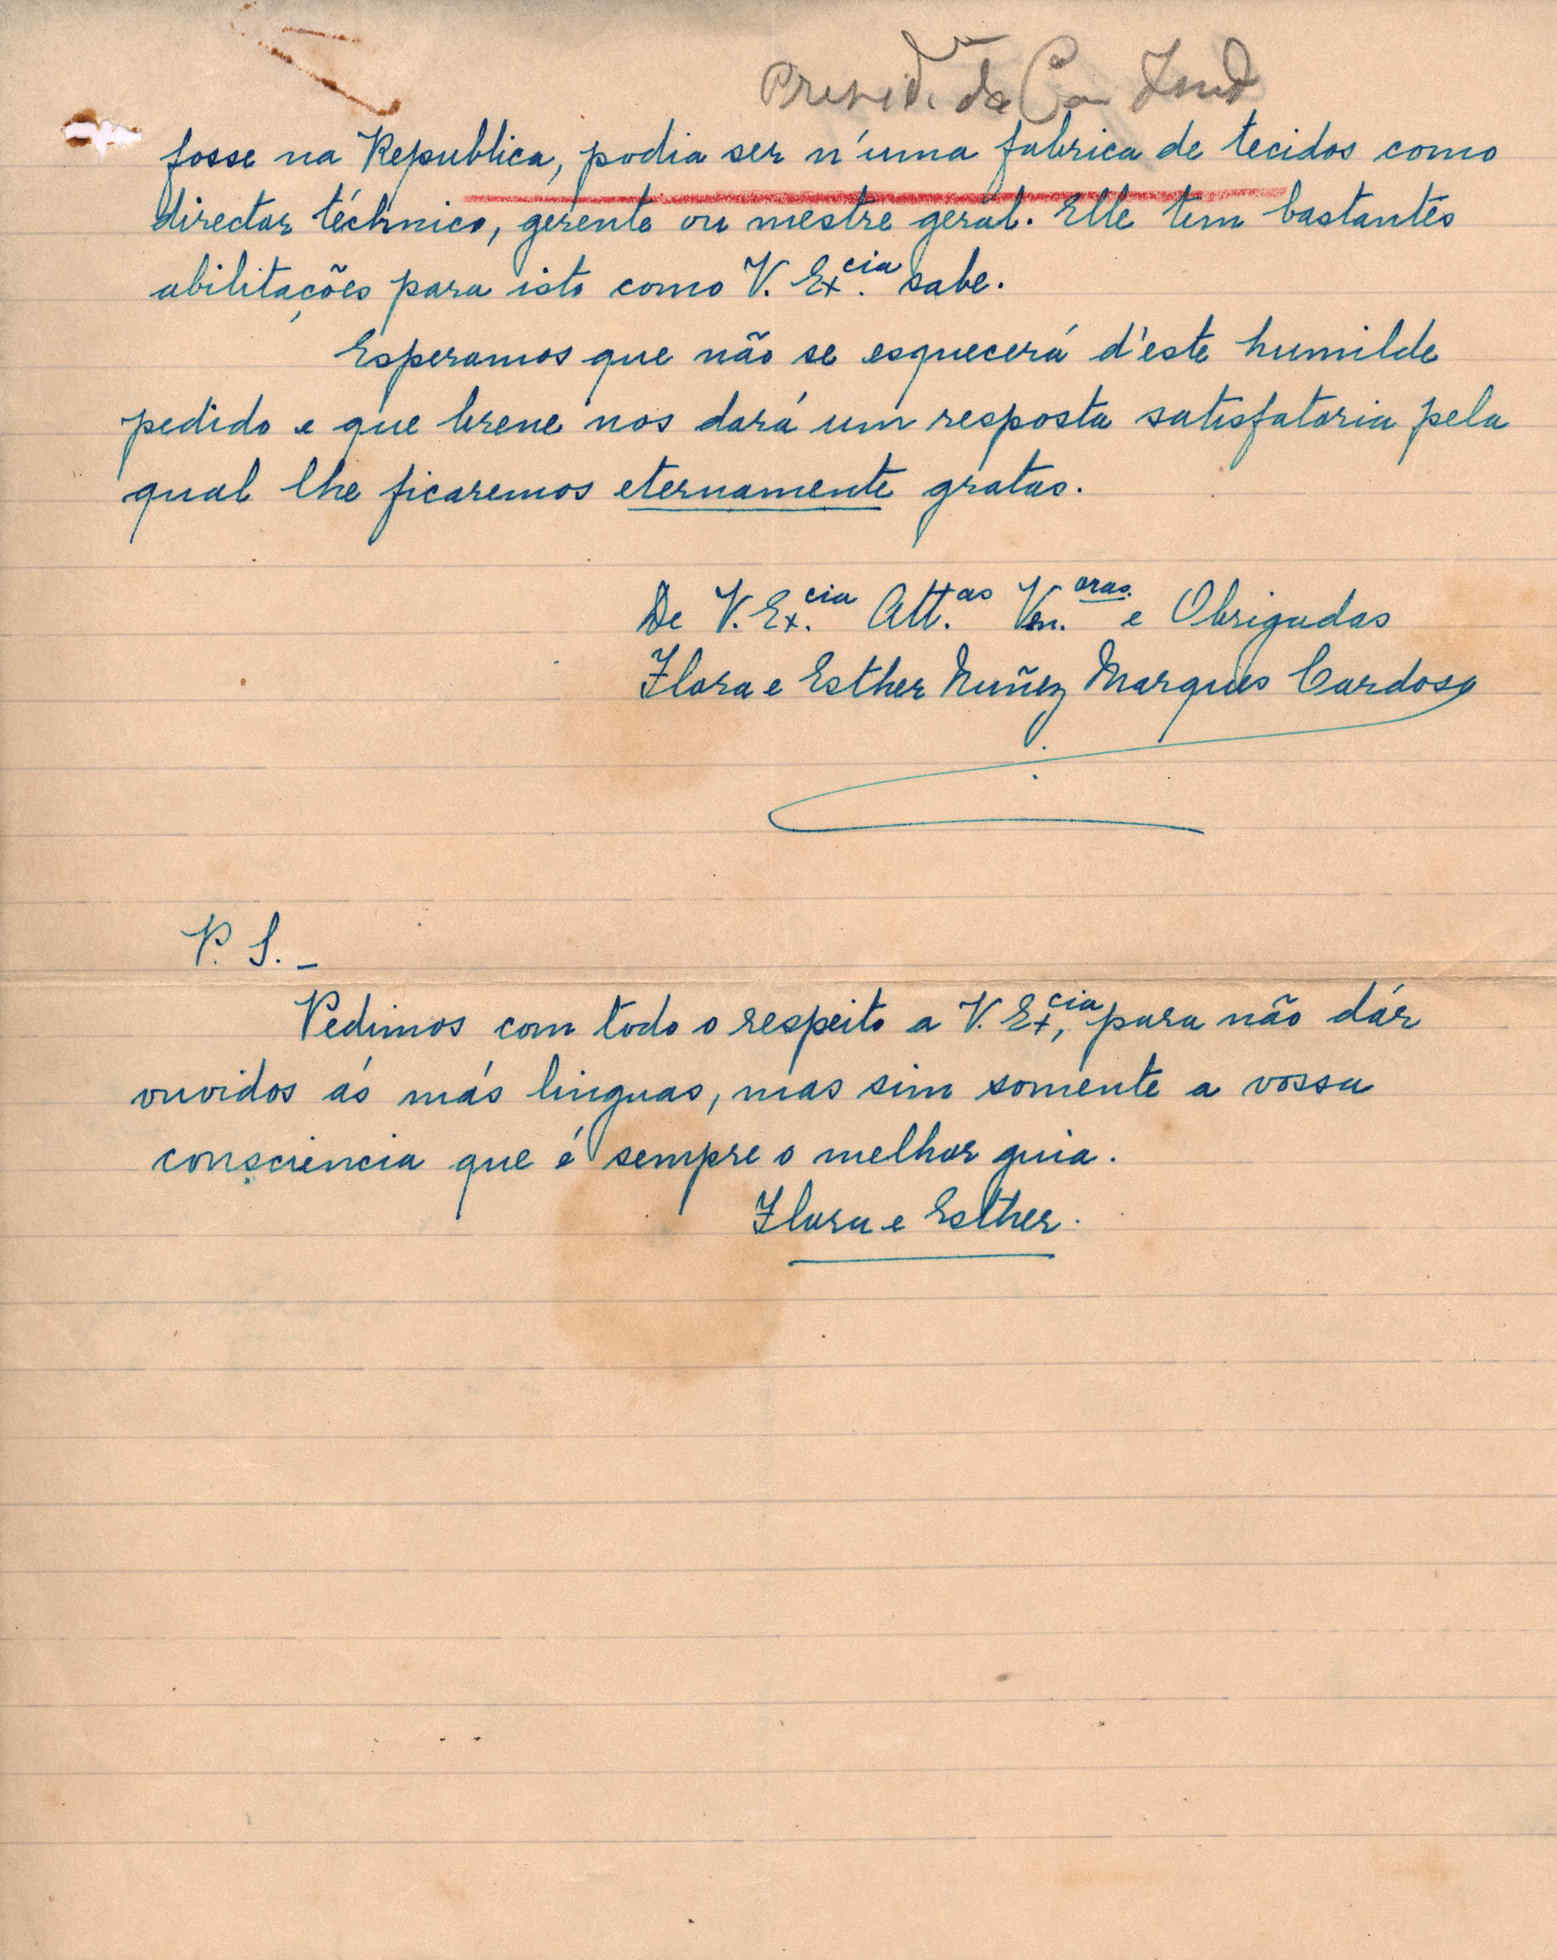 fosse na Republica, podia ser n'uma fabrica de tecidos como
director téchnico, gerente ou mestre geral. Elle tem bastantes
abilitações para isto como V. Ex.cia sabe.
Esperamos que não se esquecerá d'este humilde
pedido e que breve nos dará um resposta satisfatoria pela
qual lhe ficaremos eternamente gratas.
De V. Ex.cia Att.as Ven.oras e Obrigadas
Flora e Esther Nuñez Marques Cardoso
P. S. _
Pedimos com todo o respeito a V. Ex.cia, para não dár
ouvidos ás más linguas, mas sim somente a vossa
consciencia que é sempre o melhor guia.
Flora e Esther.